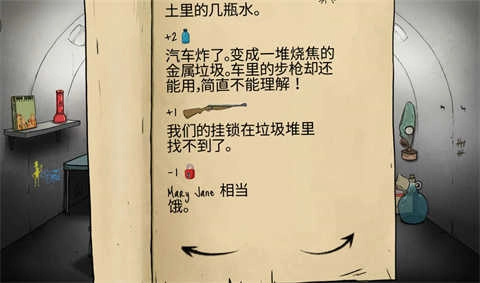 土里的几瓶水。
+2
汽车炸了。变成一堆烧焦的
金属垃圾。车里的步枪却还
能用,简直不能理解！
+1
我们的挂锁在垃圾堆里
找不到了。
-1
Mary Jane 相当
饿。